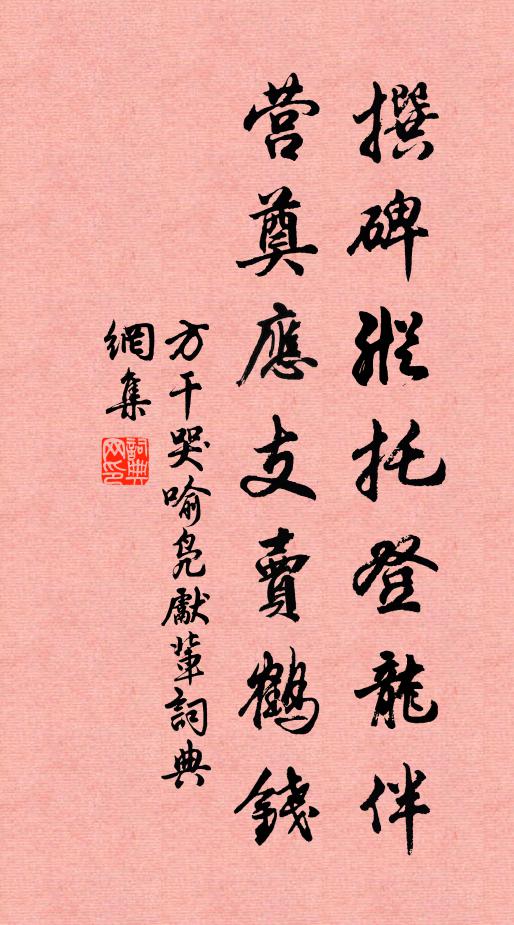 撰碑縱托登龍伴
营奠應支賣鶴錢
方干哭喻凫獻輩詞典
網集
詞典網印